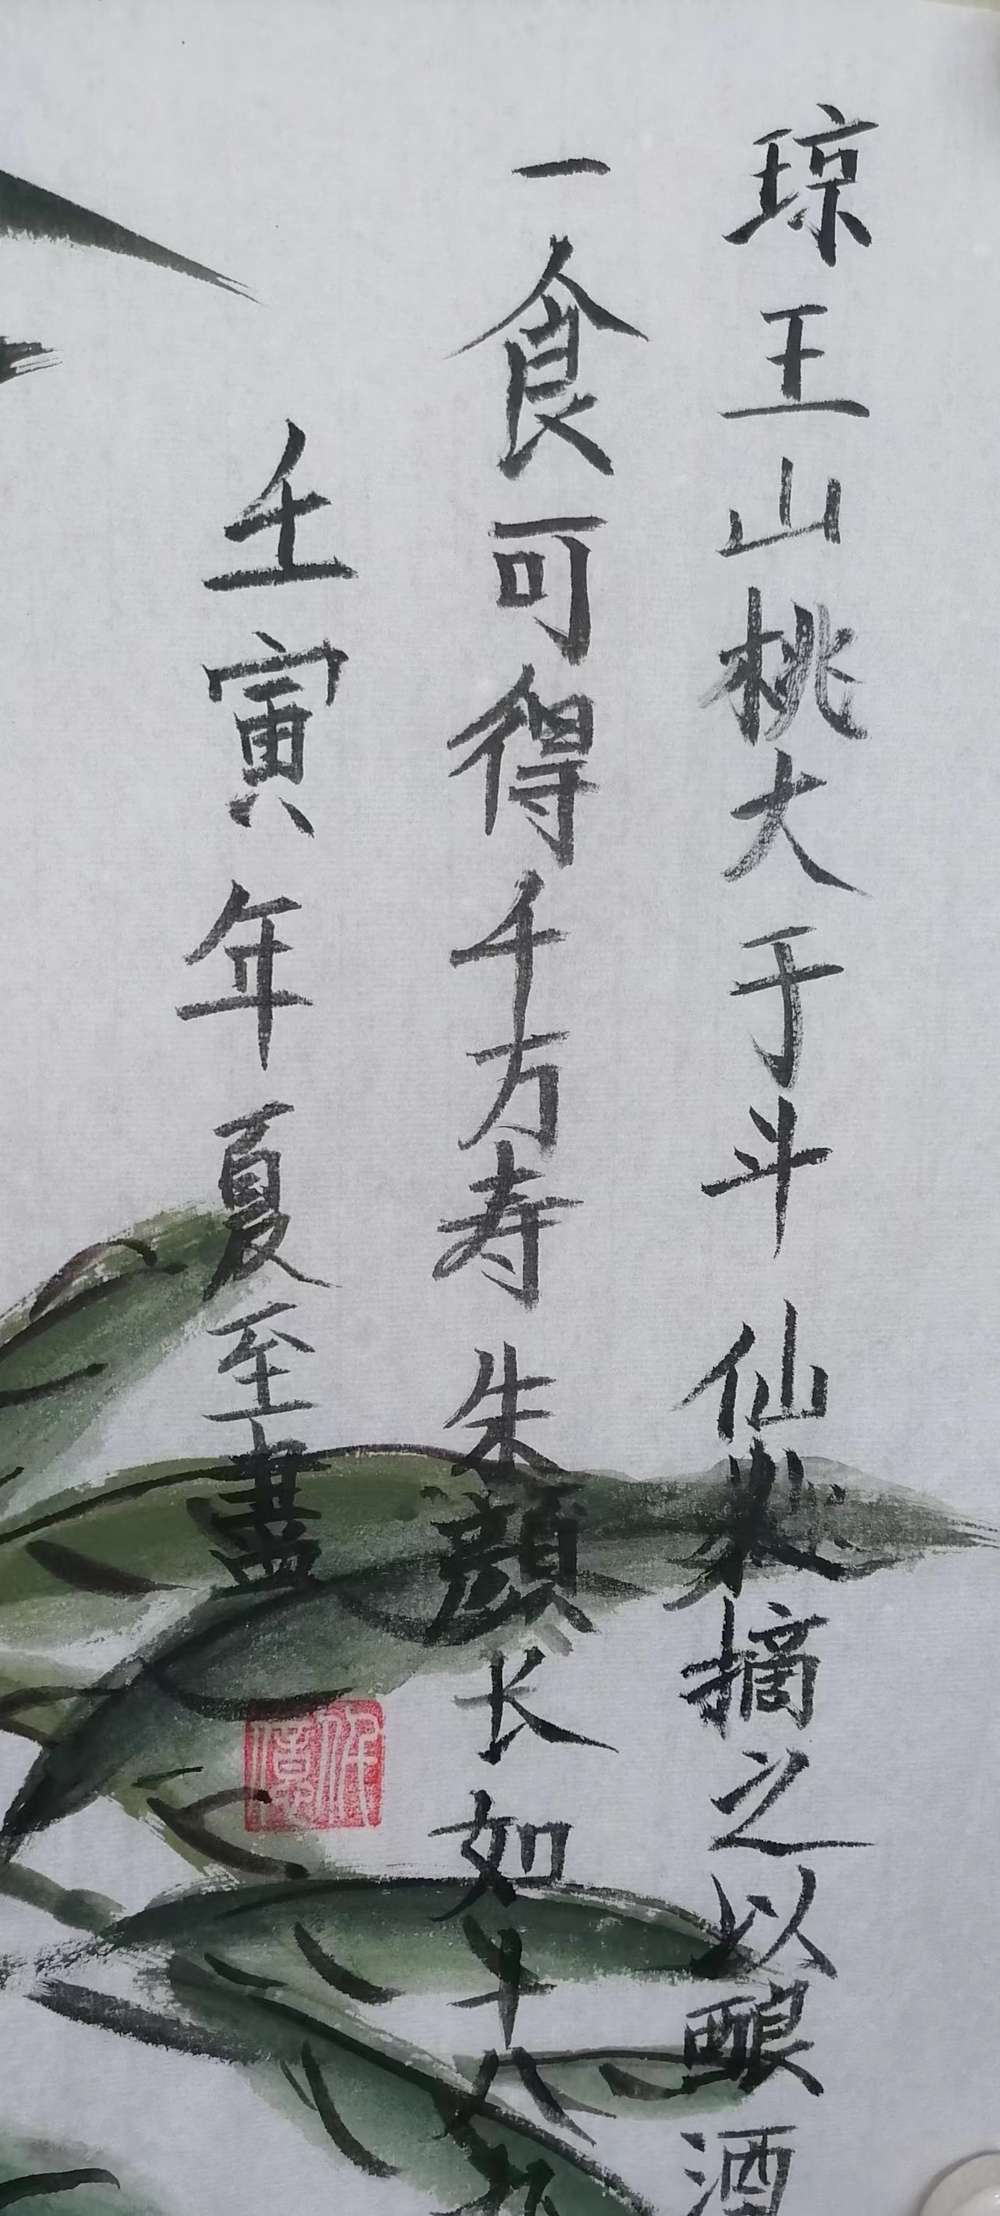 琼王山桃大于斗仙裂摘之以酿酒
一食可得千万寿朱顔长如十八九
壬寅年夏至畫